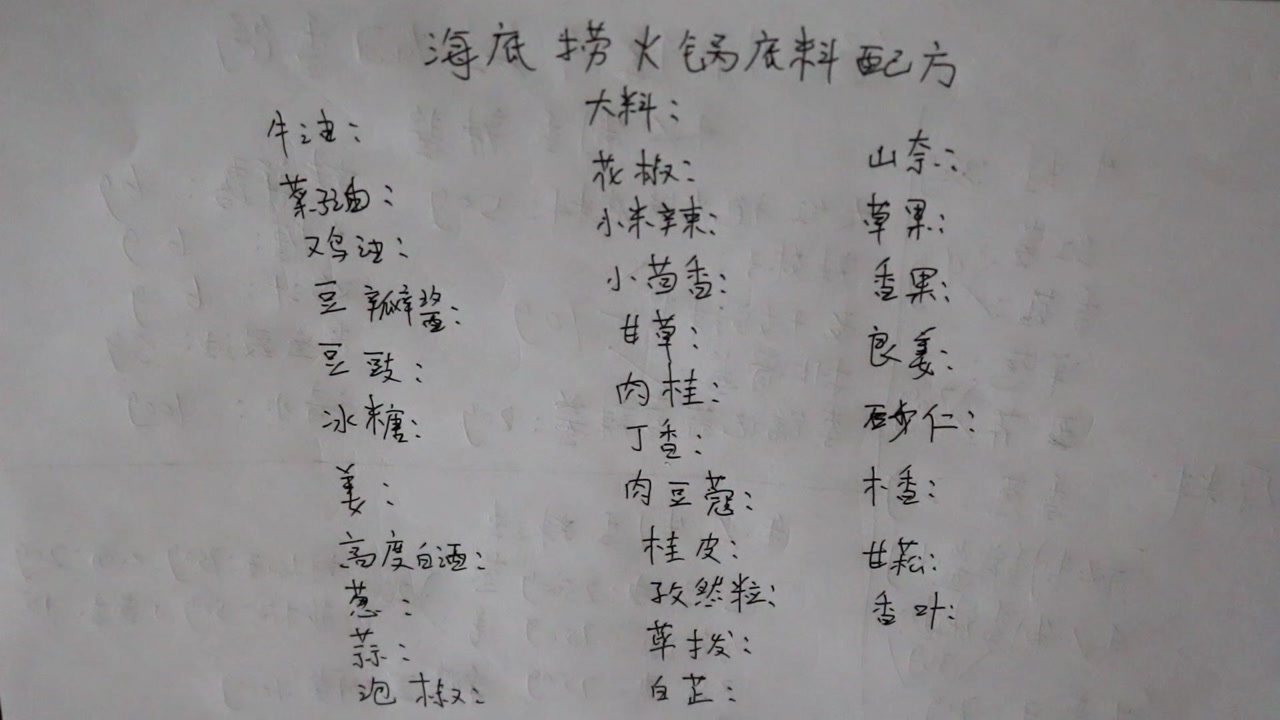 海底捞火锅底料配方
牛油：
菜籽油：
鸡油：
豆瓣酱：
豆豉：
冰糖：
姜：
高度白酒：
葱：
蒜：
泡椒：
大料：
花椒：
小米辛束：
小茴香：
甘草：
肉桂：
丁香：
肉豆蔻：
桂皮：
孜然粒：
荜拨：
白芷：
山奈：
草果：
香果：
良姜：
砂仁：
木香：
甘菘：
香叶：